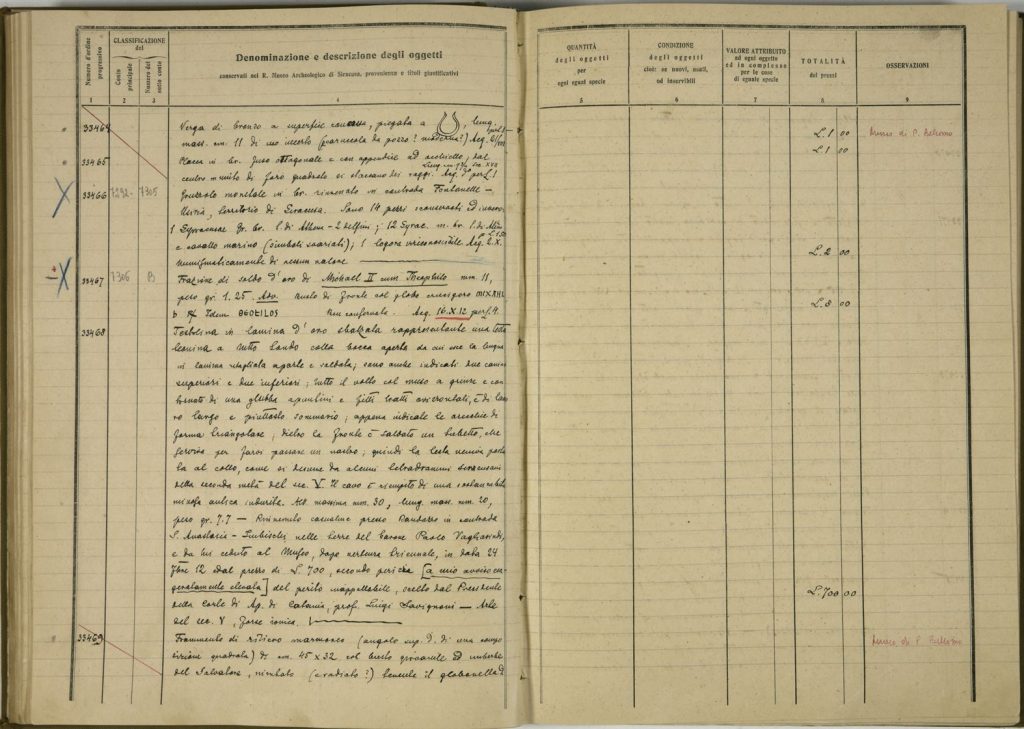 Numero d'ordine progressivo
CLASSIFICAZIONE del
Conto principale
Numero del sotto conto
Denominazione e descrizione degli oggetti
conservati nel R. Museo Archeologico di Siracusa, provenienza e titoli giustificativi
QUANTITÀ degli oggetti per ogni eguale specie
CONDIZIONE degli oggetti cioè: se nuovi, usati, od inservibili
VALORE ATTRIBUITO ad ogni oggetto ed in complesso per le cose di eguale specie
TOTALITÀ dei prezzi
OSSERVAZIONI
1 2 3 4 5 6 7 8 9
33464 Verga di bronzo a superficie convessa, piegata a , lung.
mass. cm. 11 di uso incerto (barnecola da pozzo? moderna?) Acq.
L. 1 00 Museo di P. Bellomo
33465 Placca in br. fuso ottagonale e con appendice ad occhiello, dal
L. 1 00
centro munito di foro quadrato si staccano dei raggi. Acq. per L. 1
33466 7292- 7305 Gruzzolo monetale in br. rinvenuto in contrada Fontanelle –
, territorio di Siracusa. Sono 14 pezzi
1 Syracusae gr. br. t. di Athena - 2 delfini; 12 Syrac. m. br. t. di
e cavallo marino (simboli svariati); 1 logora irriconoscibile Acq. L. X.
Numismaticamente di nessun valore
L. 2 00
33467 7306 B Frazione di soldo d'oro di Michael II cum Theophilo mm. 11,
peso gr. 1.25. Adv. Busto di fronte col globo crucigero MIXAHL
L. 8 00
Idem ΘEOFILOS Ben conservata. Acq. 16.X.12 per
33468 Testolina in lamina d'oro sbalzata rappresentante una testa
leonina a tutto tondo colla bocca aperta da cui esce la lingua
in lamina ritagliata a parte e saldata; sono anche indicati due canini
superiori e due inferiori; tutto il volto col muso a grinze e con
di una giubba a puntini e fitti tratti, è di lavo
ro largo e piuttosto sommario; appena indicate le orecchie di
forma triangolare; dietro la fronte è saldato un tubetto, che
serviva per farvi passare un nastro; quindi la testa veniva porta
ta al collo, come si desume da alcuni tetradrammi siracusani
della seconda metà del sec. V. Il cavo è riempito di una sostanza
antica indurita. Alt. massima mm. 30, lung. mass. mm. 20,
peso gr. 7.7 – Rinvenuto casualmente presso Randazzo in contrada
S. Anastasia - nelle terre del barone Paolo Vagliasindi,
e da lui ceduto al Museo, dopo vertenza triennale, in data 24
12 dal prezzo di L. 700, secondo perizia [a mio avviso esa
geratamente elevata] del perito inappellabile, eletto dal Presidente
L. 700 00
della Corte di Ap. di Catania, prof. Luigi Savignoni — Arte
del sec. V, forse ionica.
33469 Frammento di rilievo marmoreo (angolo sup. d. di una compo
sizione quadrata) di cm. 45 x 32 col busto giovanile ed imberbe
Museo di P. Bellomo
del Salvatore, nimbato (e radiato?) tenente il globo nella d